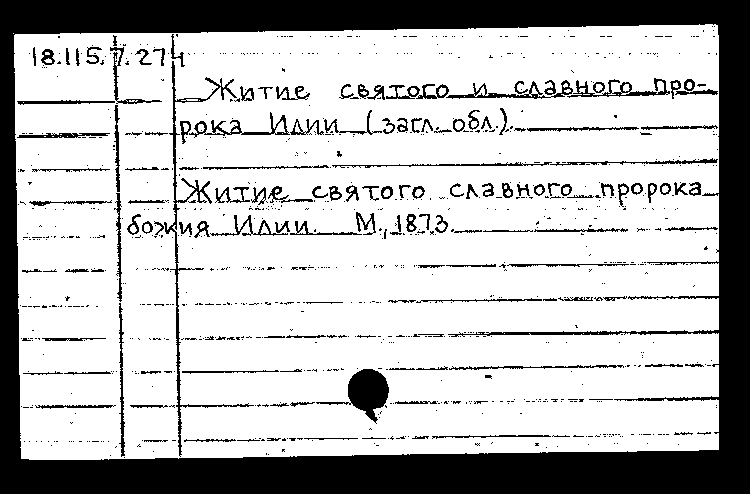 18.115.7.274
Житие святого и славного про-
рока Илии (загл. обл.).
Житие святого славного пророка
божия Илии. М., 1873.